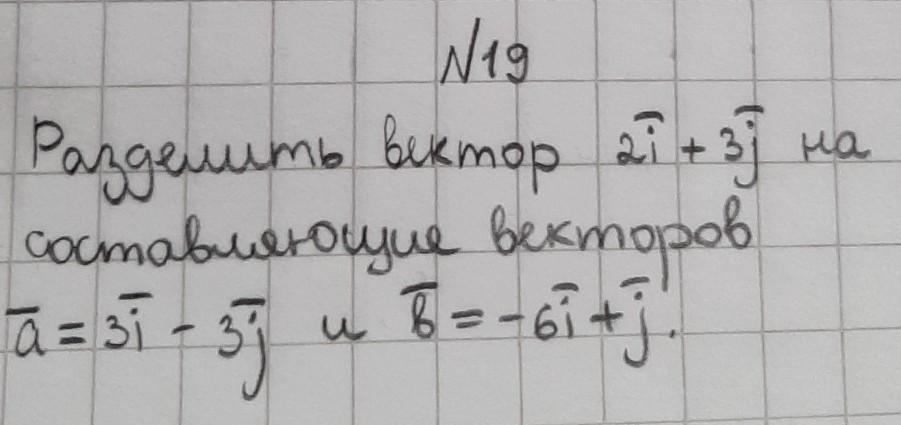 N19
Разделить вектор 2i̅ + 3j̅ на
составляющие векторов
a̅ = 3i̅ - 3j̅ и b̅ = -6i̅ + j̅.